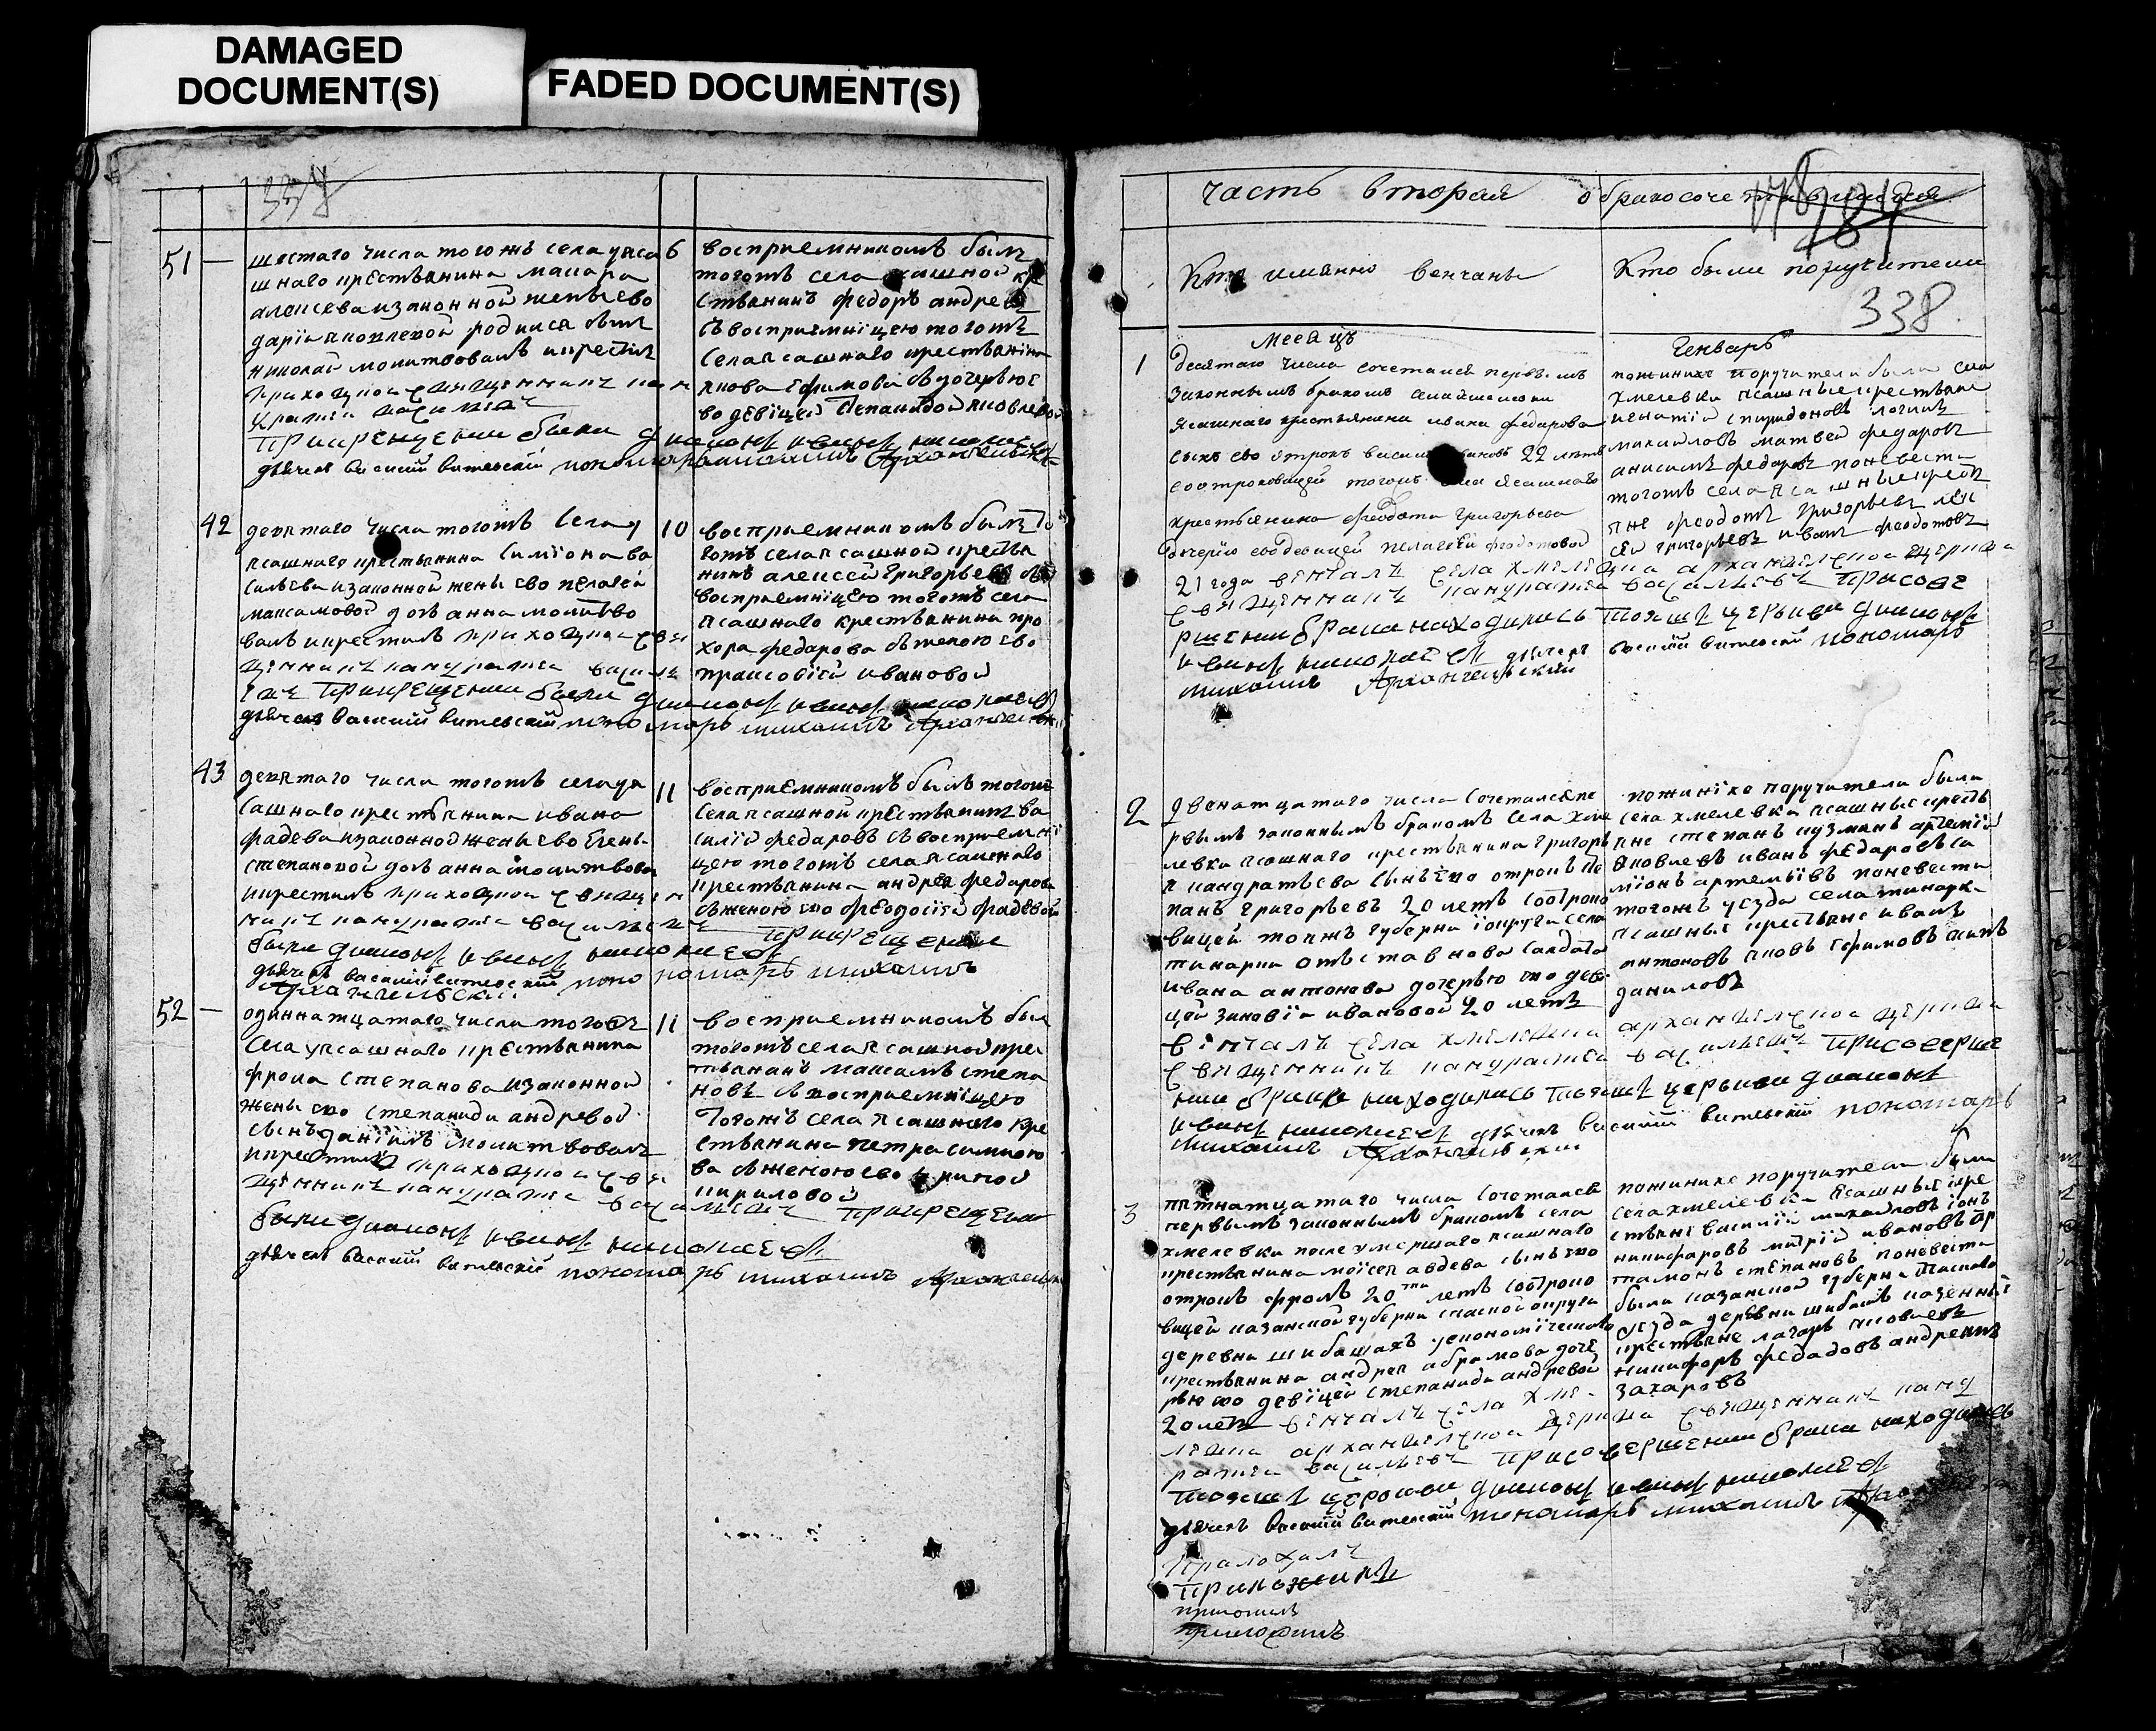 DAMAGED
DOCUMENT(S)
FADED DOCUMENT(S)
51 — шестаго числа тогожъ села уяса 6
шнаго крестьянина макара
алексева иззаконной жены ево
дарiи яковлевой родился сынъ
николай молитвовалъ икрестилъ
приходцкой священникъ кан
дратей васильевъ
прикрещении были диаконъ
дьячекъ василий витевский пономарь михаилъ Архангельский
восприемникомъ былъ
тогожъ села ясашной кре
стьянинъ федоръ андреев
съвосприемнiцею тогожъ
села ясашнаго крестьянина
якова ефимова съдочерью е
во девiцей степанидой яковлевой
42 девятаго числа тогожъ села у 10
ясашнаго крестьянина симiона ва
сильева иззаконной жены ево пелагеи
максимовой дочь анна молитво
валъ икрестилъ приходцкой свя
щенникъ кандратей василь
евъ прикрещении были диаконъ
дьячекъ василий витевский пономарь михаилъ Архангельский
восприемникомъ былъ то
гожъ села ясашной крестья
нинъ алексей григорьевъ съ
восприемнiцею тогожъ села
ясашнаго крестьянина про
хора федарова съженою ево
прасковiей ивановой
43 девятаго числа тогожъ села уя 11
сашнаго крестьянина ивана
фадева иззаконной жены ево елены
степановой дочь анна молитвовал
икрестилъ приходцкой священ
никъ кандратей васильевъ
прикрещении
были диаконъ
дьячекъ василий витевский пономарь михаилъ
Архангельский
восприемникомъ былъ тогожъ
села ясашной крестьянинъ ва
силiй федаровъ съвосприемнi
цею тогожъ села ясашнаго
крестьянина андрея федарова
съженою ево феодосiей фадевой
52 — одиннатцатаго числа тогожъ 11
села уясашнаго крестьянина
фрола степанова иззаконной
жены ево степаниды андревой
сынъ данiилъ молитвовалъ
икрестилъ приходцкой свя
щенникъ кандратей васильевъ
прикрещении
были диаконъ
дьячекъ василий витевский пономарь михаилъ Архангельский
восприемникомъ был
тогожъ села ясашной крес
тьянинъ максимъ степа
новъ съвосприемнiцею
тогожъ села ясашнаго кре
стьянина петра симионо
ва съженою ево ириной
кириловой
часть вторая о бракосочетавшихся
Кто имянно венчаны
Кто были поручители
338
месяцъ
Генварь
1 десятаго числа сочетался первымъ
законнымъ бракомъ села хмелевки
ясашнаго крестьянина ивана федарова
сынъ ево отрокъ василей ивановъ 22 летъ
соотроковицей тогожъ села ясашнаго
крестьянина феодота григорьева
дочерью ево девицей пелагеей феодотовой
21 года венчалъ села хмелевки архангелской церкви
священникъ кандратей васильевъ присове
ршении брака находились тояжъ церькви диаконъ
дьячекъ василий витевский пономарь
михаилъ Архангельский
пожинихе поручители были села
хмелевки ясашные крестьяне
игнатiй спиридоновъ логинъ
михаиловъ матвей федаровъ
анисимъ федаровъ поневесте
тогожъ села ясашные кресть
яне феодотъ григорьевъ
григорьевъ иванъ феодотовъ
2 двенатцатаго числа сочетался пе
рвымъ законнымъ бракомъ села хме
левки ясашнаго крестьянина григорь
я кандратьева сынъ ево отрокъ
григорьевъ 20 летъ соотроко
вицей тояжъ губерни iокруги села
тинарки отъставнова салдата
ивана антонова дочерью ево деви
цей зиновiи ивановой 20 летъ
венчалъ села хмелевки архангелской церкви
священникъ кандратей васильевъ присоверше
нии брака находились тояжъ церькви диаконъ
дьячекъ василий витевский пономарь
михаилъ Архангельский
пожинiхе поручители были
села хмелевки ясашные кресть
яне степанъ кузминъ артемiй
яковлевъ иванъ федаровъ си
мiонъ артемьевъ поневесте
тогожъ уезда села тинарки
ясашные крестьяне иванъ
антоновъ яковъ ефимовъ
даниловъ
3 пятнатцатаго числа сочетался
первымъ законнымъ бракомъ села
хмелевки после умершаго ясашнаго
крестьянина моисея авдева сынъ ево
отрокъ фролъ 20ти летъ соотроко
вицей казанской губерни спаской округи
деревни шибашахъ уекономiческаго
крестьянина андрея абрамова доче
рью ево девiцей степанидой андревой
20 летъ венчалъ села хме
левки архангелской церкви священникъ канд
ратей васильевъ присовершении брака находились
тояжъ церькви диаконъ
дьячекъ василий витевский пономарь михаилъ
пожинихе поручители были
села хмелевки ясашные кре
стьяне василий михаиловъ iонъ
никифаровъ митрiй ивановъ ар
тамонъ степановъ поневесте
были казанской губерни спаскаго
уезда деревни шибашъ казенный
крестьяне лазарь яковлевъ
никифоръ федадовъ андреянъ
захаровъ
приложилъ
приложилъ
приложилъ